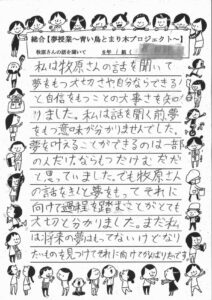 総合【夢授業〜青い鳥とまり木プロジェクト〜】
牧原さんの話を聞いて
5年 1組
私は牧原さんの話を聞いて
夢をもつ大切さや自分ならできる
と自信をもつことの大事さを知
りました。私は話を聞く前、夢
をもつ意味が分かりませんでした。
夢を叶えることができるのは一部
の人だけならもつだけむだだ
と思っていました。でも牧原さん
の話をきいて夢をもってそれに
向けて過程を踏まことがとても
大切と分かりました。まだ私
は将来の夢はもってないけどなり
たいものを見つけてそれに向けてがんばりたいです